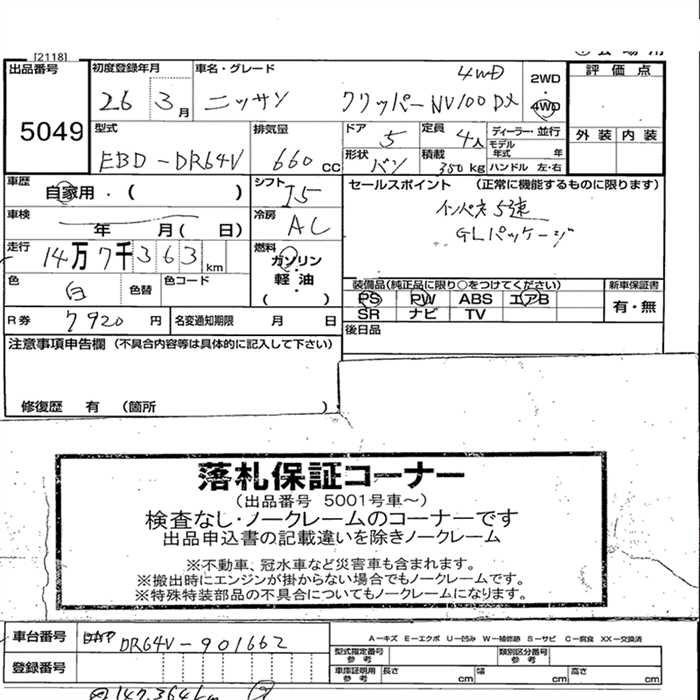 [2118]
出品番号 初度登録年月 車名・グレード 4WD 2WD 評価点
5049 26 3月 ニッサン クリッパーNV100DX 4WD
型式 排気量 ドア 定員 ディーラー・並行 外装 内装
EBD-DR64V 660cc 5 4人 モデル年式 年
形状 バン 積載 350kg ハンドル 左・右
車歴 自家用・( ) シフト I5 セールスポイント (正常に機能するものに限ります)
車検 年 月( 日) 冷房 AC インパネ5速
GLパッケージ
走行 14万7千363km 燃料 ガソリン・軽油( )
色 白 色替 色コード
装備品(純正品に限り○をつけてください) 新車保証書
PS PW ABS エアB 有・無
SR ナビ TV
R券 7920円 名変通知期限 月 日 後日品
注意事項申告欄 (不具合内容等は具体的に記入して下さい)
修復歴 有 (箇所 )
落札保証コーナー
(出品番号 5001号車～)
検査なし・ノークレームのコーナーです
出品申込書の記載違いを除きノークレーム
※不動車、冠水車など災害車も含まれます。
※搬出時にエンジンが掛からない場合でもノークレームです。
※特殊特装部品の不具合についてもノークレームになります。
車台番号 DR64V-901662 A-キズ E-エクボ U-凹み W-補修跡 S-サビ C-腐食 XX-交換済
型式指定番号 参考 類別区分番号 参考
登録番号 車庫証明用 参考 長さ cm 幅 cm 高さ cm
147,364km